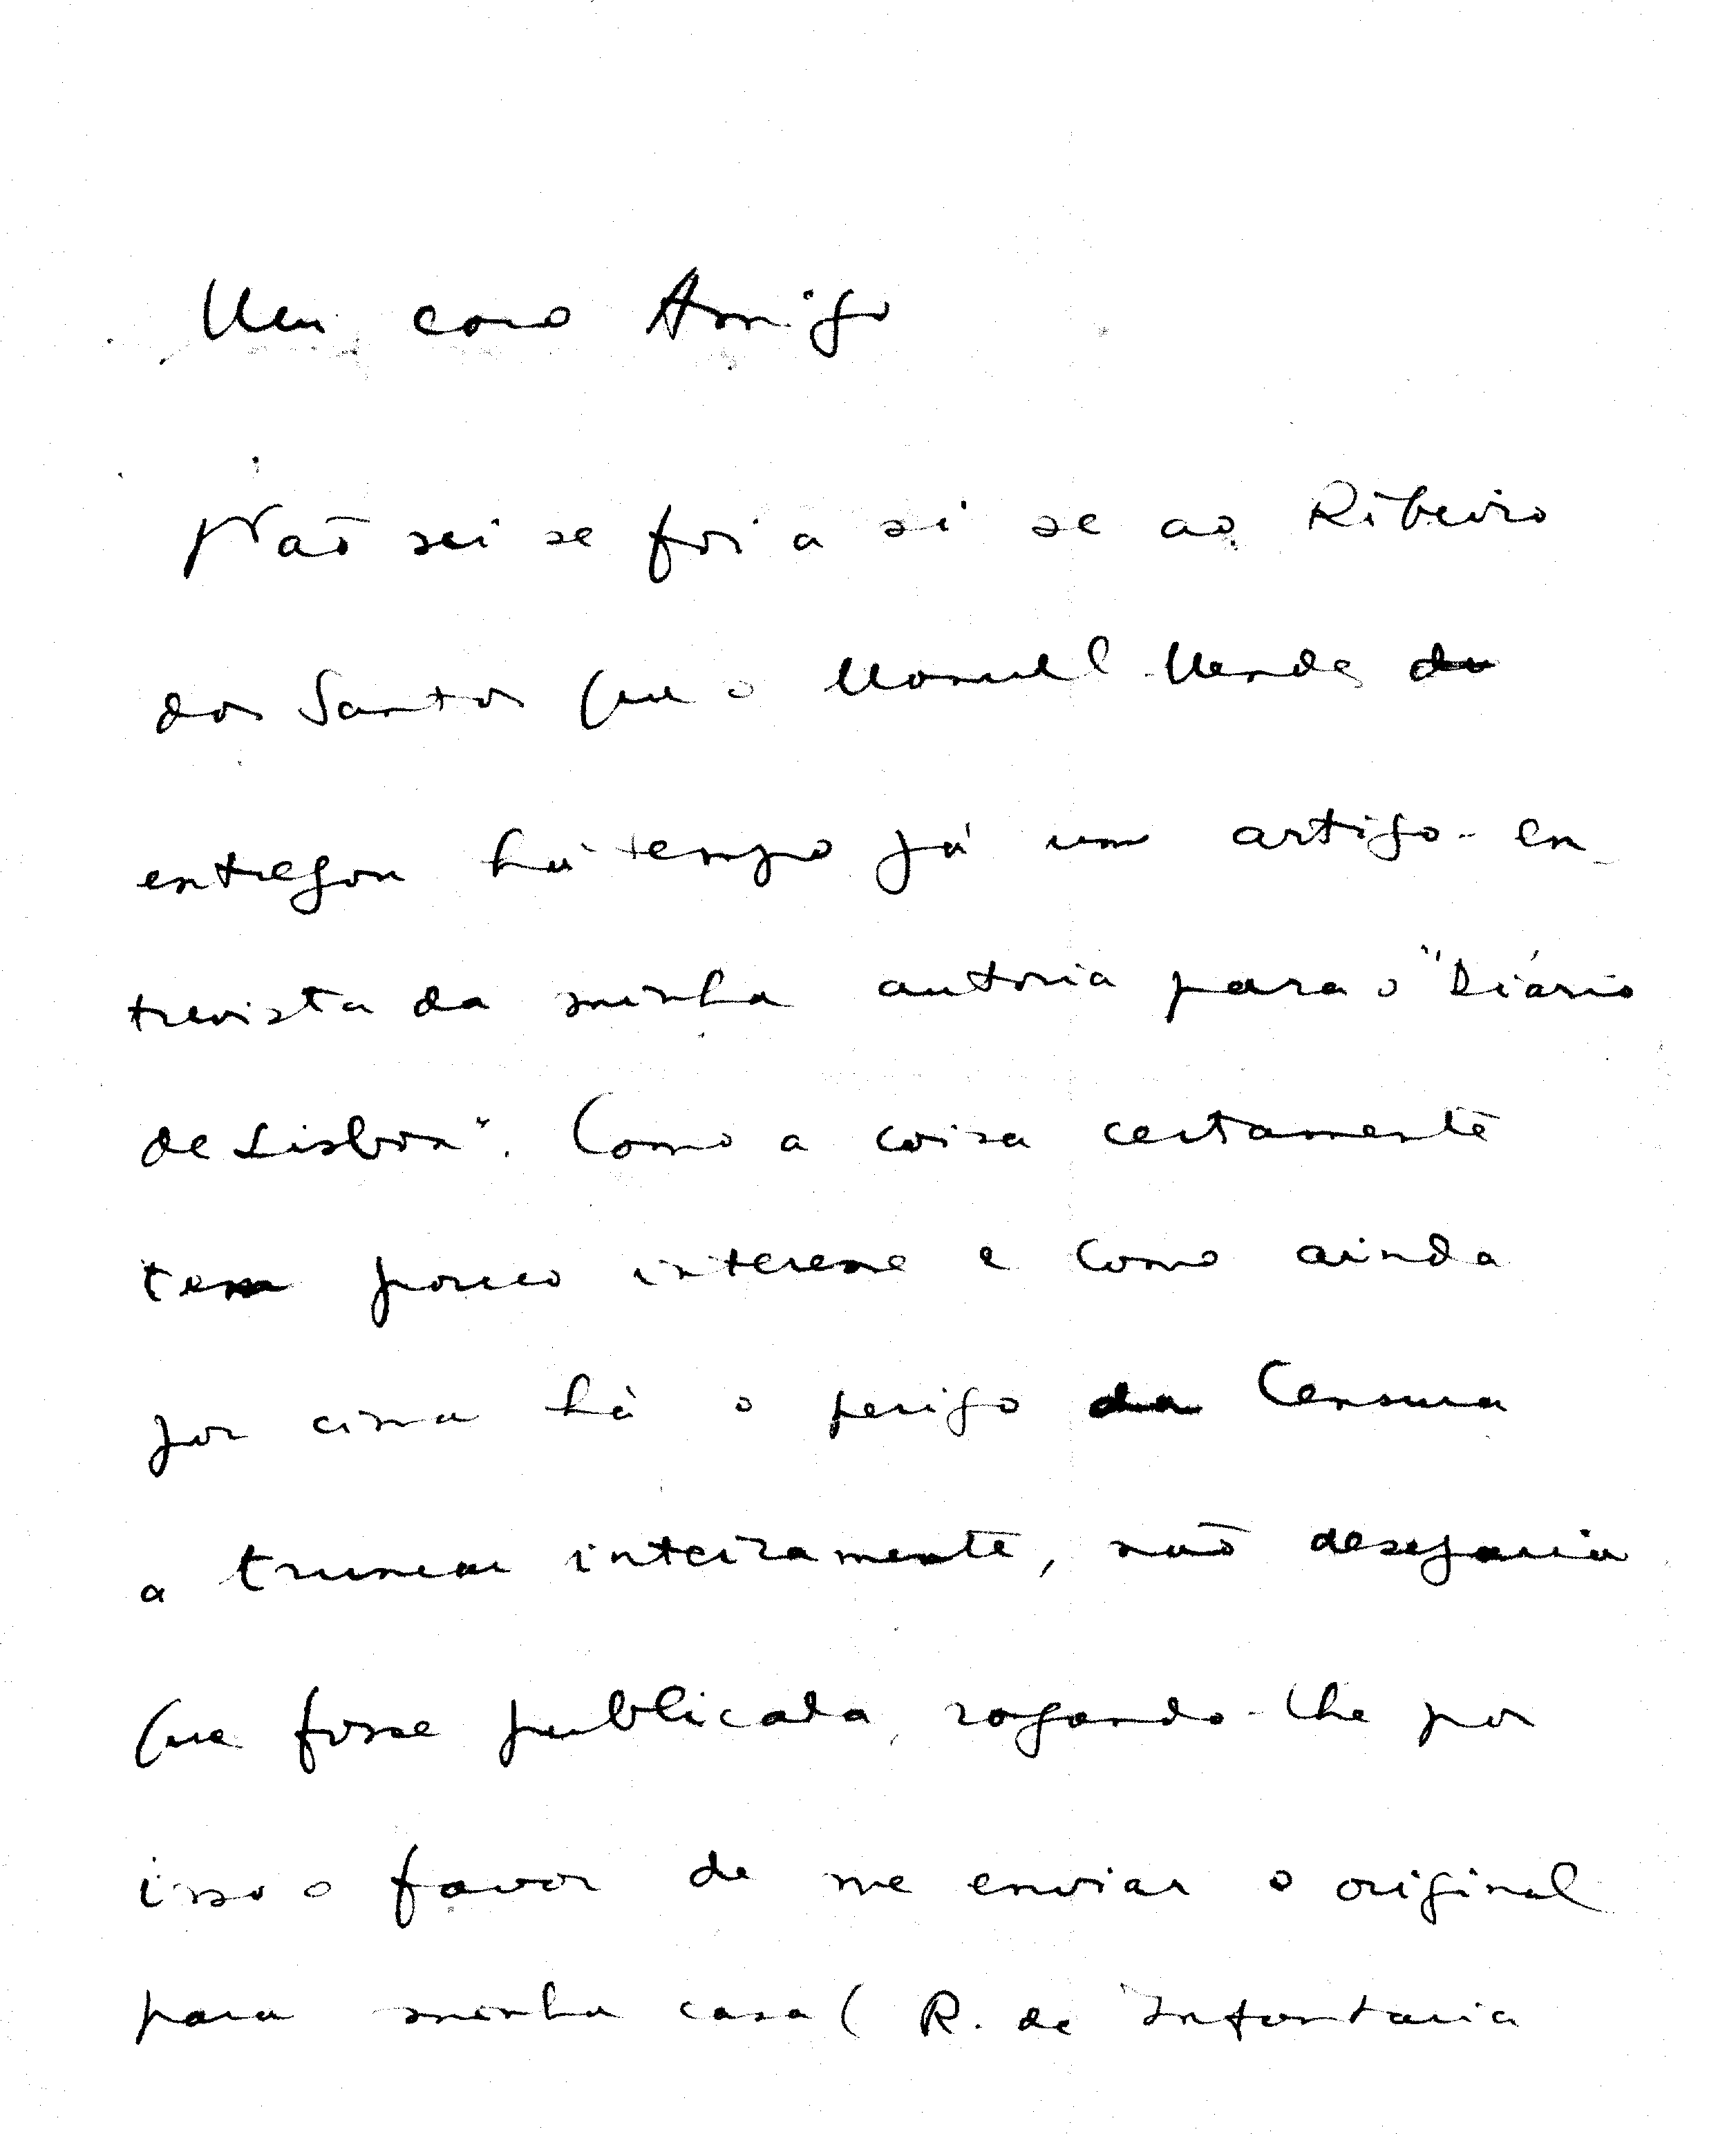 Meu caro Amigo
Não sei se foi a si se ao Ribeiro
dos Santos que o Manuel Mendes
entregou há tempo já um artigo-en-
trevista da minha autoria para o "Diário
de Lisboa". Como a coisa certamente
tem pouco interesse e como ainda
por cima há o perigo da Censura
a truncar inteiramente, não desejaria
que fosse publicada, rogando-lhe por
isso o favor de me enviar o original
para minha casa (R. de Infantaria